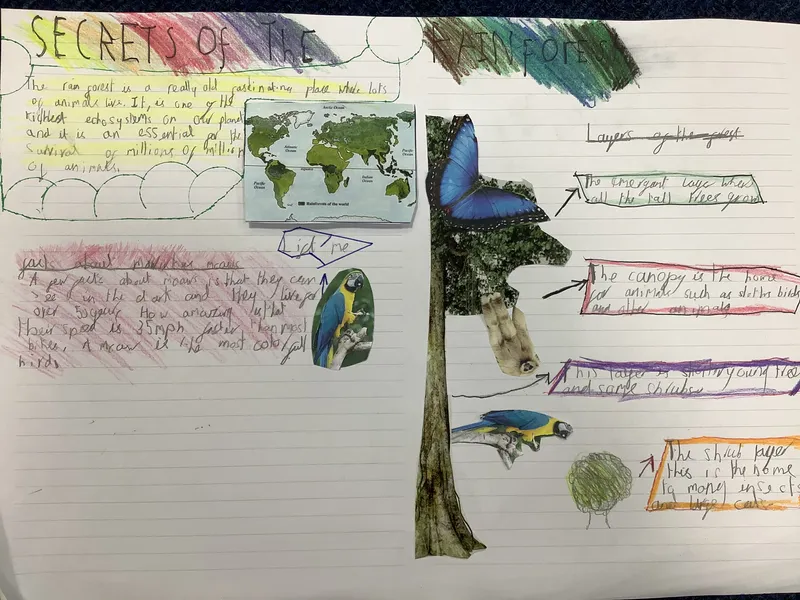 SECRETS OF THE RAINFOREST
The rain forest is a really old fascinating place where lots
of animals live. It, is one of the
richest ecosystems on our planet
and it is an essential for the
Survival of millions of millions
of animals.
Arctic Ocean
Atlantic Ocean
Pacific Ocean
Equator
Indian Ocean
Pacific Ocean
Rainforests of the world
fact about macaw
A few facts about macaw is that they can
see in the dark and they live for
over 50 years How amazing is that
Their speed is 35mph faster than most
bikes, A macaw is the most colorfull
birds
Layers of the forest
The emergent layer where
all the tall trees grow
The canopy is the home
for animals such as sloths birds
and other animals
This layer is young tree
and some shrubs
The shrub layer
this is the home
to many insects
and large cats.